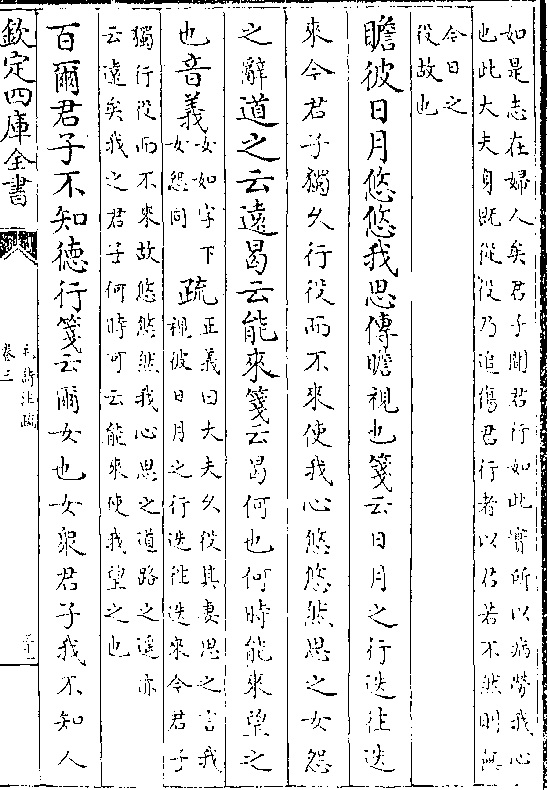 如是志在婦人矣君子聞君行如此實所以病勞我心
也此大夫身既從役乃追傷君行者以君若不然則無
今日之
役故也
瞻彼日月悠悠我思傳瞻視也箋云日月之行迭往迭
來今君子獨久行役而不來使我心悠悠然思之女怨
之辭道之云遠曷云能來箋云曷何也何時能來望之
也音義女如字下女怨同疏正義曰大夫久役其妻思之言我視彼日月之行迭往迭來今君子
獨行役而不來故悠悠然我心思之道路之遥亦
云遠矣我之君子何時可云能來使我望之也
百爾君子不知德行箋云爾女也女衆君子我不知人
欽定四庫全書
毛詩注疏
卷三